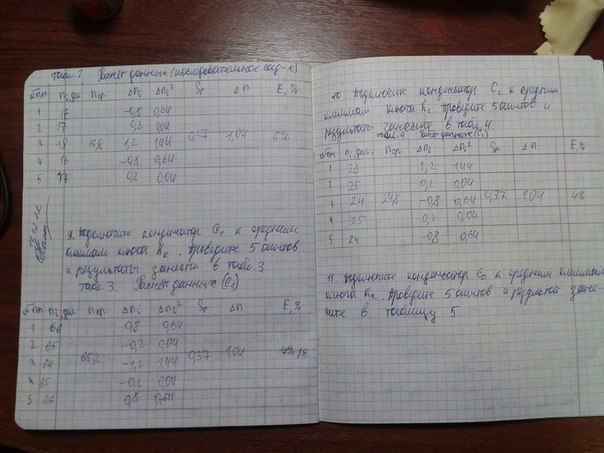 Табл. 2 Расчёт данных (последовательное соед-е)
№ п/п n, дел nср. Δni Δni² Sр Δn E, %
1 18 -0,8 0,64
2 17 0,2 0,04
3 18 16,8 1,2 1,44 0,37 1,04 6%
4 16 -0,8 0,64
5 0,2 0,04
9. Подключите конденсатор C1 к средним
клеммам ключа K2. Проведите 5 опытов
и результаты занесите в табл 3
табл 3. Расчёт данных (C1)
№ п/п ni дел nср. Δni Δni² Sр Δn E, %
1 66 0,8 0,64
2 65 -0,2 0,04
3 64 65,2 -1,2 1,44 0,37 1,04
4 65 -0,2 0,04
5 66 0,8 0,64
10 Подключите конденсатор C2 к средним
клеммам ключа K2. Проведите 5 опытов и
результаты занесите в табл 4
табл 4 Расчёт данных (C2)
№ п/п ni, дел. nср Δni Δni² Sр Δn E, %
1 26 1,2 1,44
2 25 0,2 0,04
3 24 24,8 -0,8 0,64 0,37 1,04 4%
4 25 0,2 0,04
5 24 -0,8 0,64
11 Подключите конденсатор C0 к средним клеммам
ключа K2. Проведите 5 опытов и результат зане-
сите в таблицу 5